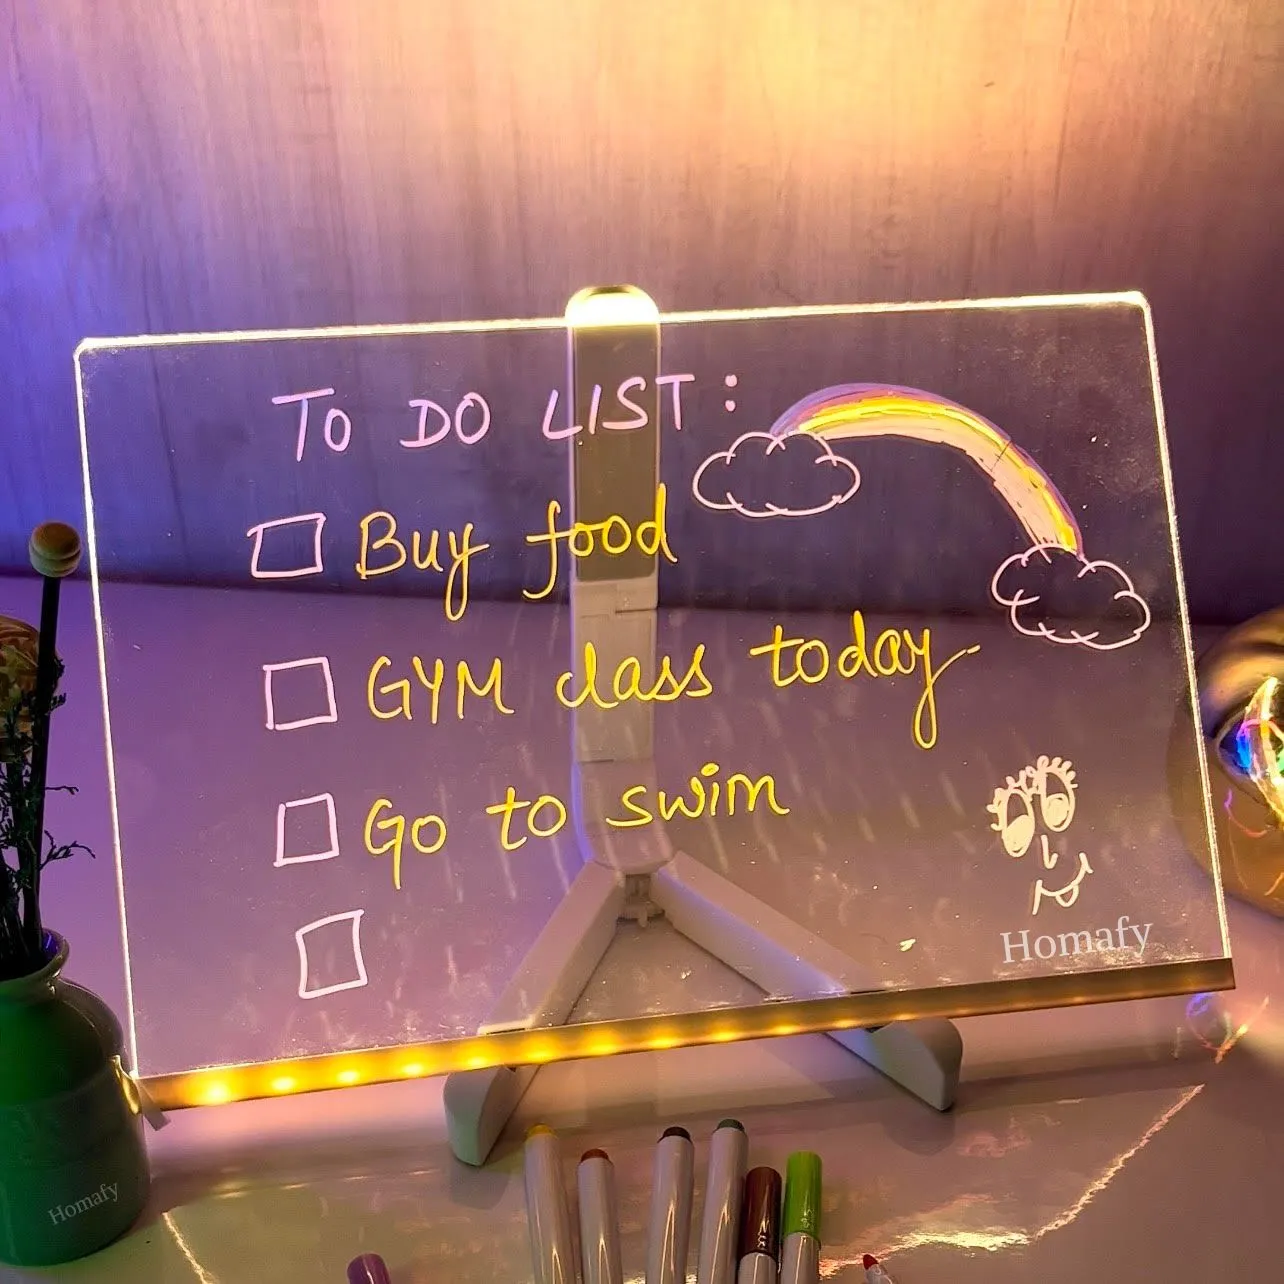 TO DO LIST:
Buy food
GYM class today
Go to swim
Homafy
Homafy